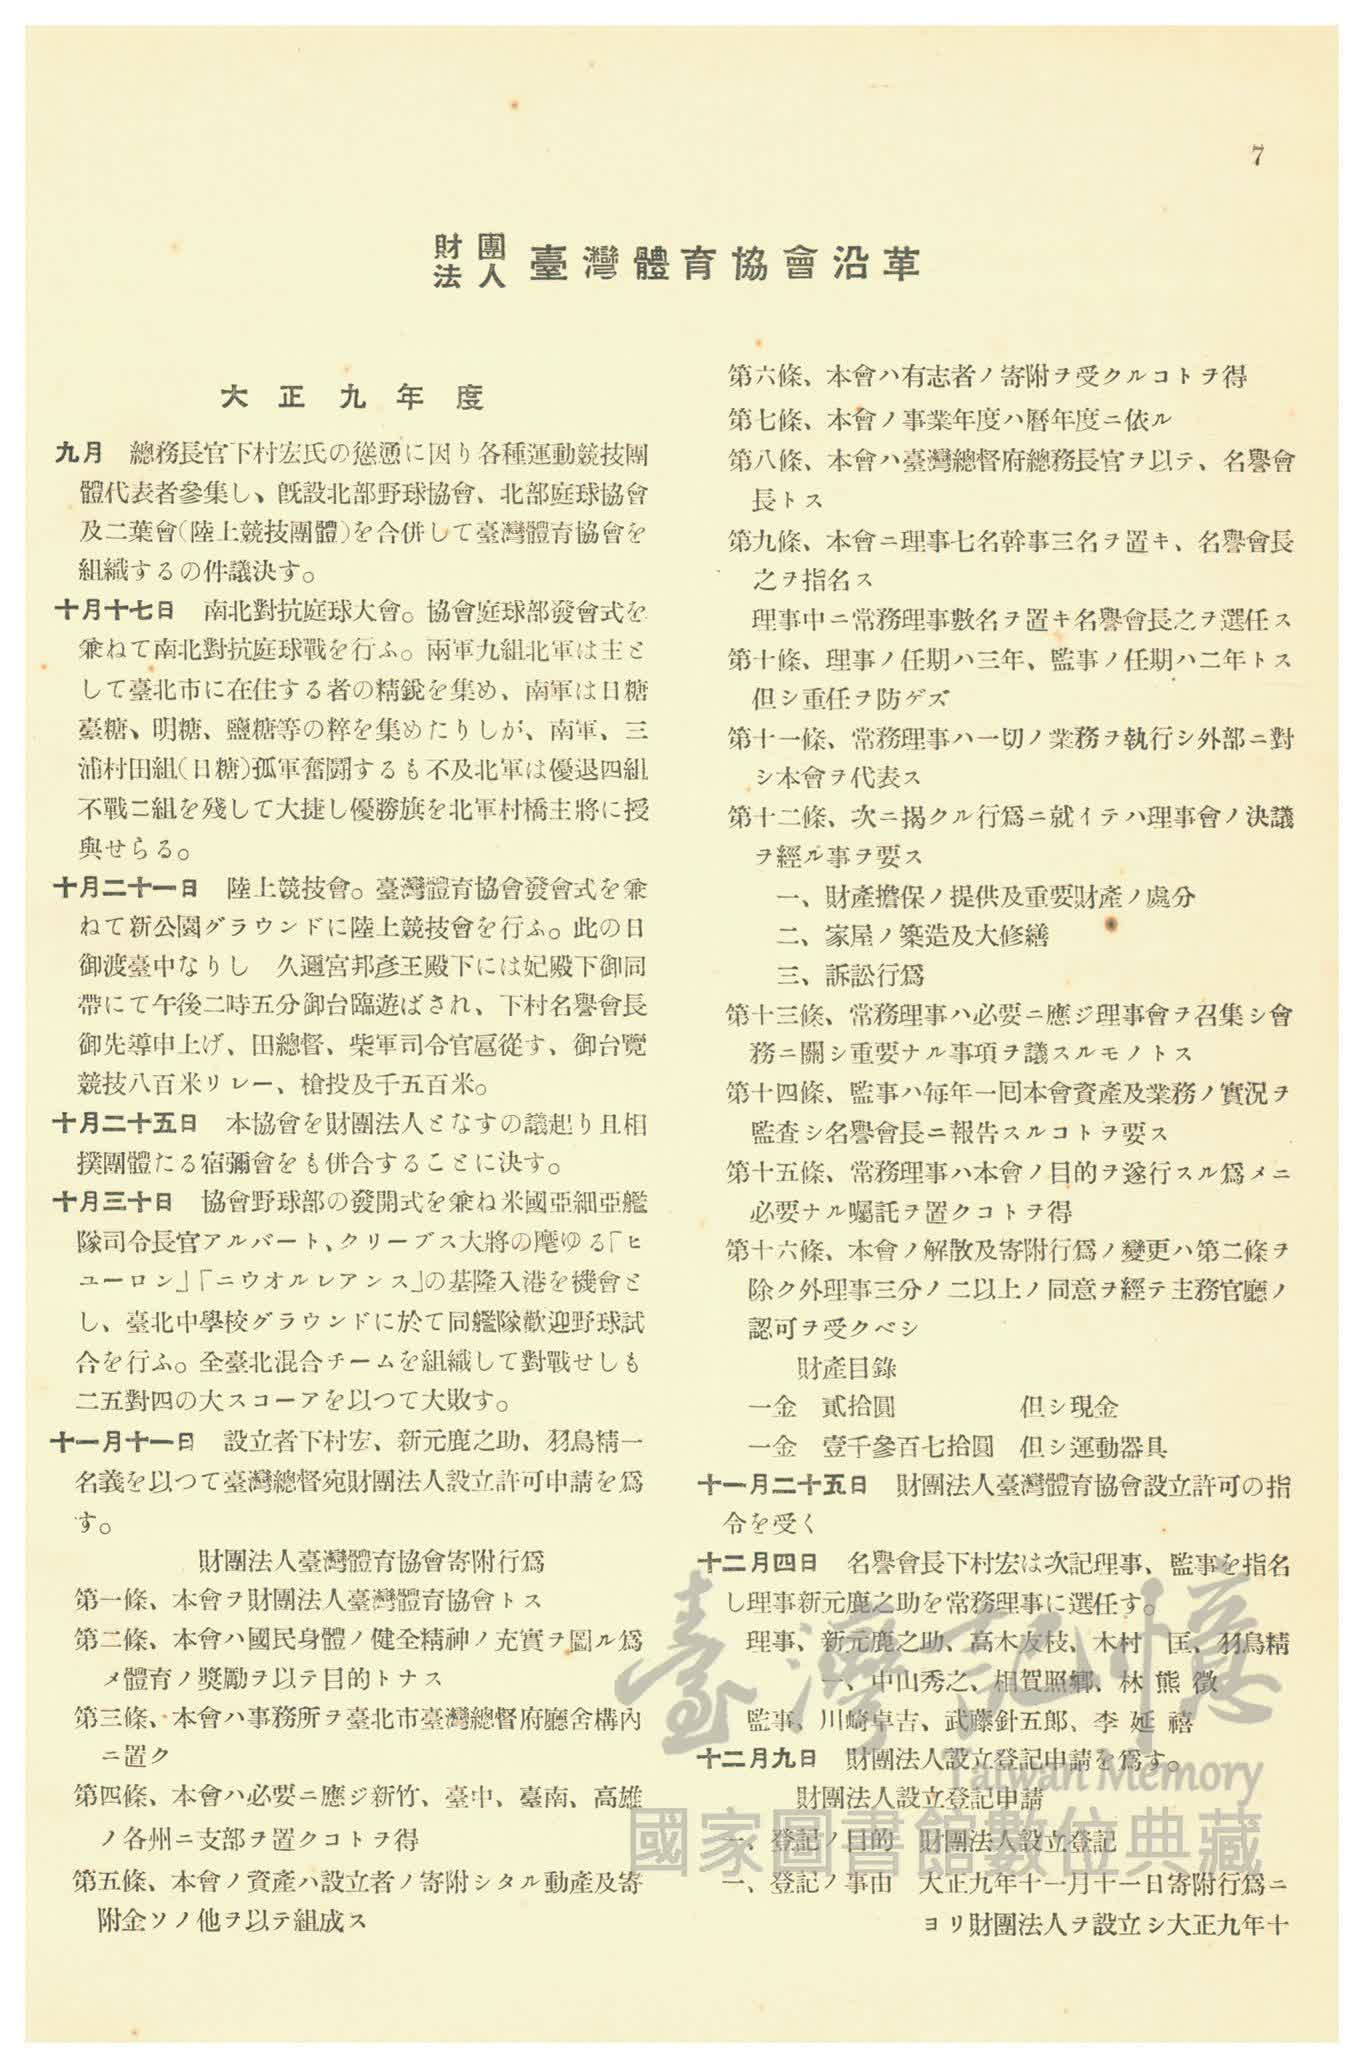 7
財團法人 臺灣體育協會沿革
大正九年度
九月　總務長官下村宏氏の慫慂に因り各種運動競技團
體代表者參集し、既設北部野球協會、北部庭球協會
及二葉會（陸上競技團體）を合併して臺灣體育協會を
組織するの件議決す。
十月十七日　南北對抗庭球大會。協會庭球部發會式を
兼ねて南北對抗庭球戰を行ふ。兩軍九組北軍は主と
して臺北市に在住する者の精銳を集め、南軍は日糖
臺糖、明糖、鹽糖等の粹を集めたりしが、南軍、三
浦村田組（日糖）孤軍奮鬪するも不及北軍は優退四組
不戰二組を殘して大捷し優勝旗を北軍村橋主將に授
與せらる。
十月二十一日　陸上競技會。臺灣體育協會發會式を兼
ねて新公園グラウンドに陸上競技會を行ふ。此の日
御渡臺中なりし　久邇宮邦彥王殿下には妃殿下御同
帶にて午後二時五分御台臨遊ばされ、下村名譽會長
御先導申上げ、田總督、柴軍司令官扈從す、御台覽
競技八百米リレー、槍投及千五百米。
十月二十五日　本協會を財團法人となすの議起り且相
撲團體たる宿彌會をも併合することに決す。
十月三十日　協會野球部の發開式を兼ね米國亞細亞艦
隊司令長官アルバート、クリーブス大將の麾ゆる「ヒ
ユーロン」「ニウオルレアンス」の基隆入港を機會と
し、臺北中學校グラウンドに於て同艦隊歡迎野球試
合を行ふ。全臺北混合チームを組織して對戰せしも
二五對四の大スコーアを以つて大敗す。
十一月十一日　設立者下村宏、新元鹿之助、羽鳥精一
名義を以つて臺灣總督宛財團法人設立許可申請を爲
す。
財團法人臺灣體育協會寄附行爲
第一條、本會ヲ財團法人臺灣體育協會トス
第二條、本會ハ國民身體ノ健全精神ノ充實ヲ圖ル爲
メ體育ノ獎勵ヲ以テ目的トナス
第三條、本會ハ事務所ヲ臺北市臺灣總督府廳舍構內
ニ置ク
第四條、本會ハ必要ニ應ジ新竹、臺中、臺南、高雄
ノ各州ニ支部ヲ置クコトヲ得
第五條、本會ノ資產ハ設立者ノ寄附シタル動產及寄
附金ソノ他ヲ以テ組成ス
第六條、本會ハ有志者ノ寄附ヲ受クルコトヲ得
第七條、本會ノ事業年度ハ曆年度ニ依ル
第八條、本會ハ臺灣總督府總務長官ヲ以テ、名譽會
長トス
第九條、本會ニ理事七名幹事三名ヲ置キ、名譽會長
之ヲ指名ス
理事中ニ常務理事數名ヲ置キ名譽會長之ヲ選任ス
第十條、理事ノ任期ハ三年、監事ノ任期ハ二年トス
但シ重任ヲ防ゲズ
第十一條、常務理事ハ一切ノ業務ヲ執行シ外部ニ對
シ本會ヲ代表ス
第十二條、次ニ揭クル行爲ニ就イテハ理事會ノ決議
ヲ經ル事ヲ要ス
一、財產擔保ノ提供及重要財產ノ處分
二、家屋ノ築造及大修繕
三、訴訟行爲
第十三條、常務理事ハ必要ニ應ジ理事會ヲ召集シ會
務ニ關シ重要ナル事項ヲ議スルモノトス
第十四條、監事ハ每年一回本會資產及業務ノ實況ヲ
監查シ名譽會長ニ報告スルコトヲ要ス
第十五條、常務理事ハ本會ノ目的ヲ遂行スル爲メニ
必要ナル囑託ヲ置クコトヲ得
第十六條、本會ノ解散及寄附行爲ノ變更ハ第二條ヲ
除ク外理事三分ノ二以上ノ同意ヲ經テ主務官廳ノ
認可ヲ受クベシ
財產目錄
一金　貳拾圓　但シ現金
一金　壹千參百七拾圓　但シ運動器具
十一月二十五日　財團法人臺灣體育協會設立許可の指
令を受く
十二月四日　名譽會長下村宏は次記理事、監事を指名
し理事新元鹿之助を常務理事に選任す。
理事、新元鹿之助、高木友枝、木村　匡、羽鳥精
一、中山秀之、相賀照鄉、林熊徵
監事、川崎卓吉、武藤針五郎、李延禧
十二月九日　財團法人設立登記申請を爲す。
財團法人設立登記申請
一、登記ノ目的　財團法人設立登記
一、登記ノ事由　大正九年十一月十一日寄附行爲ニ
ヨリ財團法人ヲ設立シ大正九年十
臺灣記憶
Taiwan Memory
國家圖書館數位典藏